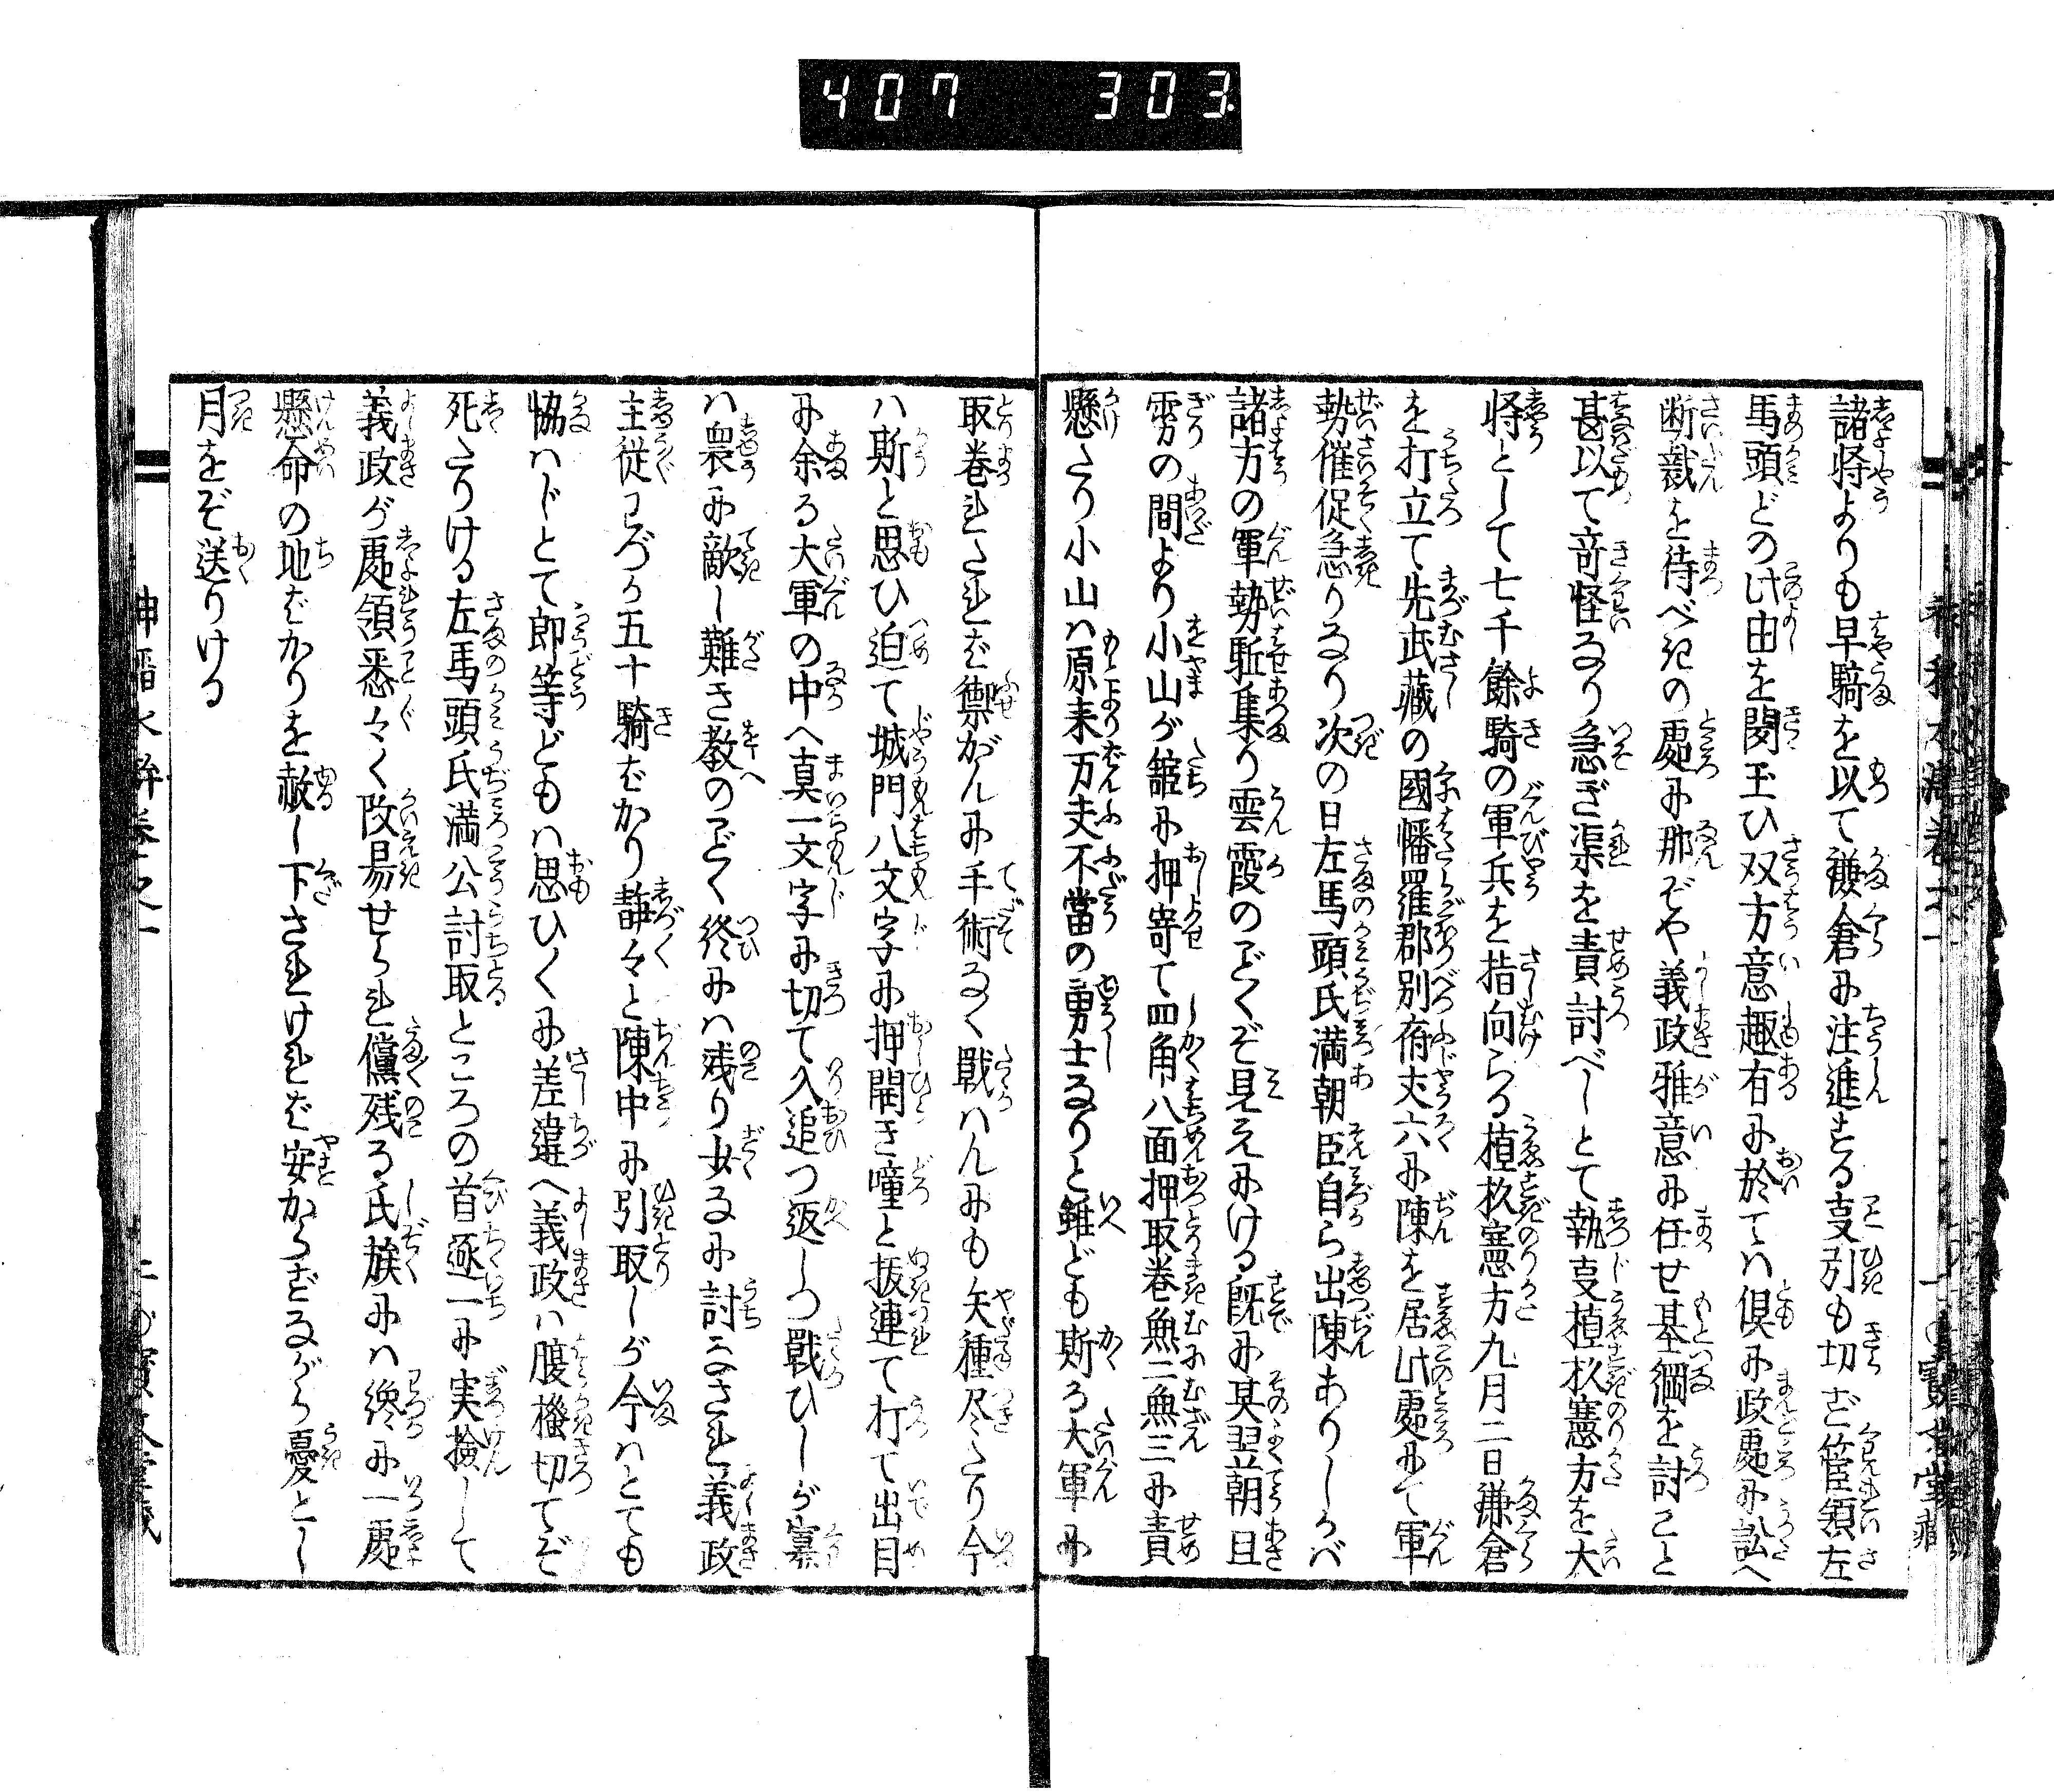 407 303
諸将よりも早騎を以て鎌倉に注進する支引も切ず管領左
馬頭どの此由を聞玉ひ双方意趣有に於ては倶に政處に訟へ
断裁を待べきの處に那ぞや義政雅意に任せ基綱を討こと
甚以て竒怪なり急ぎ渠を責討べしとて執支植杦憲方を大
将として七千餘騎の軍兵を指向らる植杦憲方九月二日鎌倉
を打立て先武藏の國幡羅郡別府丈六に陳を居此處にて軍
勢催促急りなり次の日左馬頭氏満朝臣自ら出陳ありしうバ
諸方の軍勢馳集り雲霞のごくぞ見えにける既に其翌朝旦
雰の間より小山が舘に押寄て四角八面押取巻無二無三に責
懸たり小山は原来万夫不當の勇士なりと雖ども斯る大軍に
取巻れたれば禦がんに手術なく戰はんにも矢種尽たり今
ハ斯と思ひ迫て城門八文字に押開き噇と抜連て打て出目
に余る大軍の中へ真一文字に切て入追つ返しつ戰ひしが寡
ハ衆に敵し難き教のごく終にハ残り少なに討なされ義政
主従わづか五十騎ばかり静々と陳中に引取しが今ハとても
恊ハじとて郎等どもハ思ひ〱に差違へ義政ハ腹搔切てぞ
死たりける左馬頭氏満公討取ところの首逐一に実撿して
義政が處領悉々く改易せられ儻残る氏族にハ纔に一處
懸命の地ばかりを赦し下されければ安からざるながら憂とし
月をぞ送りける